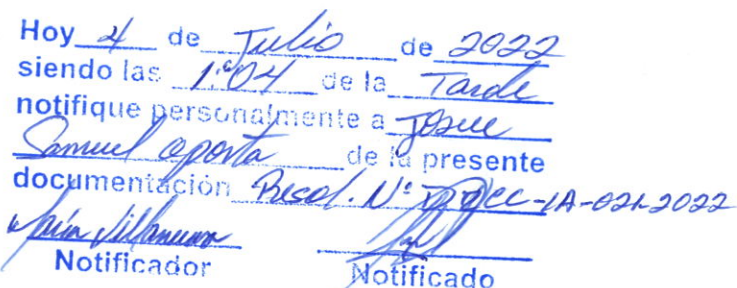 Hoy 4 de Julio de 2022
siendo las 1:04 de la Tarde
notifique personalmente a Josue
Samuel aporta de la presente
documentación Resol. N° -IA-021-2022
María Villanueva
Notificador Notificado